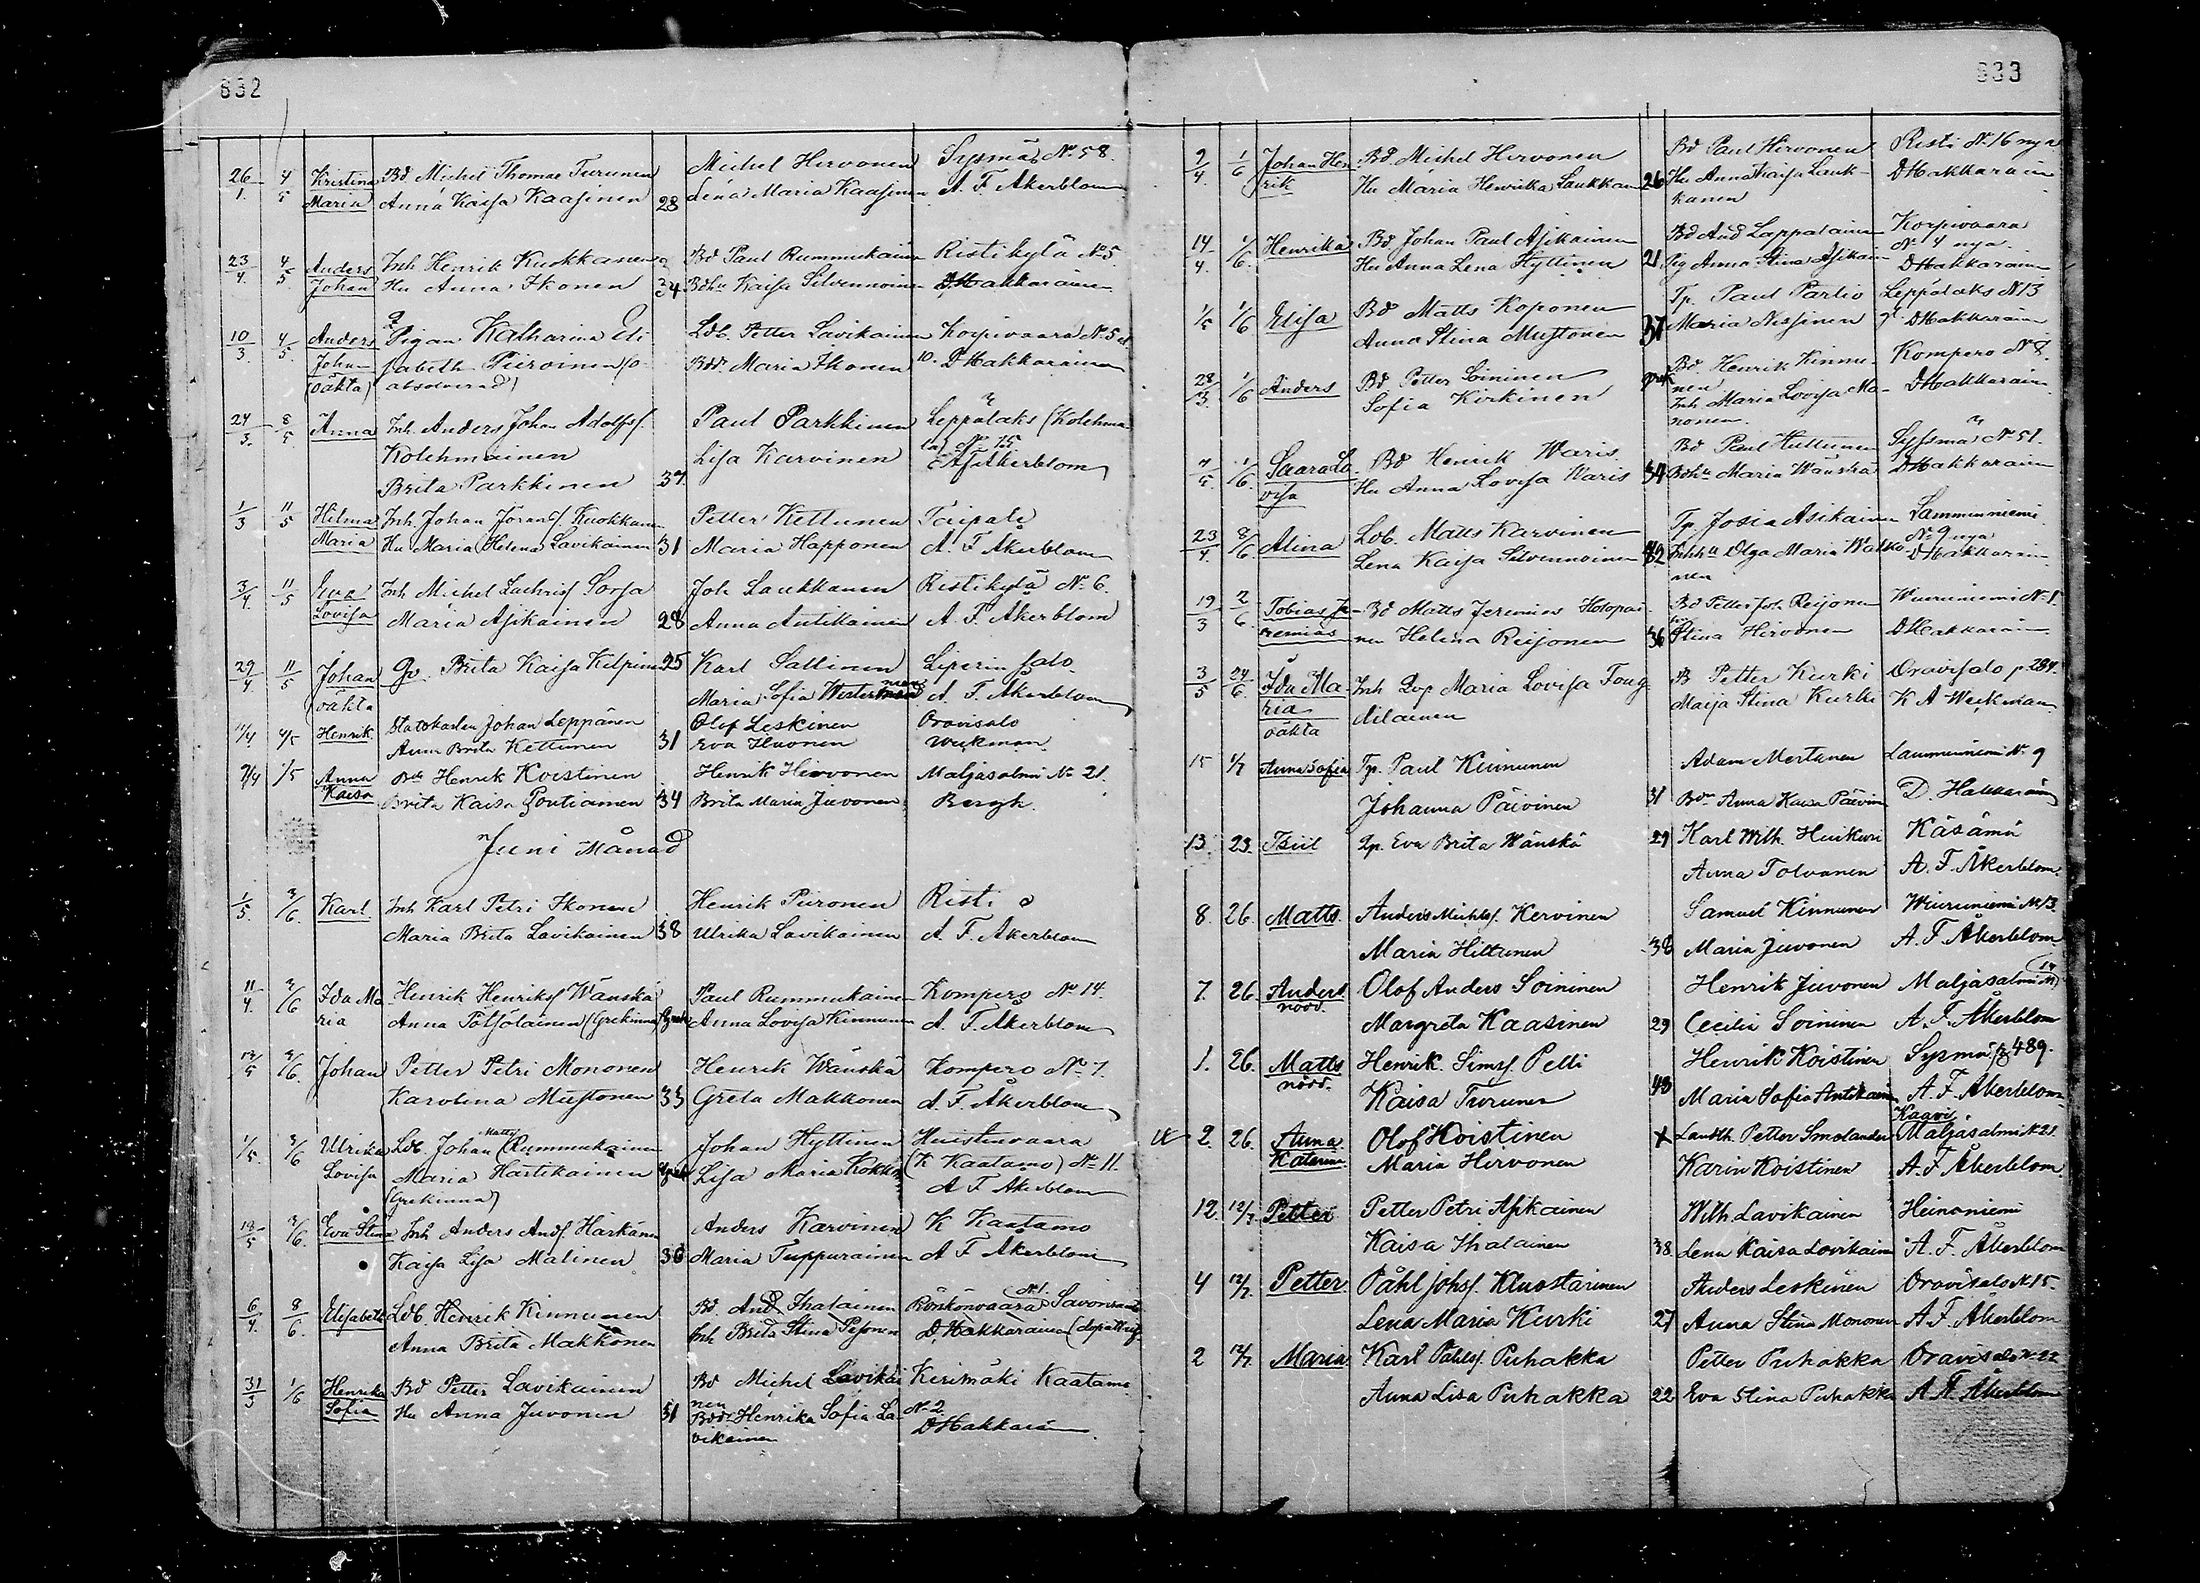 832
26/1 4/5 Kristina Bd Michel Thomas Turunen Michel Hirvonen Sysmä No 58.
Maria Anna Kaisa Kaasinen 28 Lena Maria Kaasinen A. F. Åkerblom
23/4 4/5 Anders Inh Henrik Kuokkanen Bd Paul Rummukainen Ristikylä No 5.
Johan Hu Anna Ikonen 34 Bdhu Kaisa Silvennoinen D Hakkarainen
10/3 4/5 Anders Pigan Katharina Eli Ldb. Petter Lavikainen Korpivaara No 5 el
Johan sabeth Piiroinen (o Bddr Maria Ikonen 10. D Hakkarainen
(oäkta) absolverad)
24/3 8/5 Anna Inh. Anders Johan Adolfsf. Paul Parkkinen Leppälaks (Kolehma
Kolehmainen Lisa Karvinen la) No 15
Brita Parkkinen 37. A F Åkerblom
1/3 11/5 Hilma Inh. Johan Göransf. Kuokkanen Petter Kettunen Taipale
Maria Hu Maria Helena Lavikainen 31 Maria Happonen A. F Åkerblom
3/4 11/5 Eva Inh Michel Zachrisf Sorsa Joh Laukkanen Ristikylä No 6.
Lovisa Maria Asikainen 28 Anna Antikainen A. F. Åkerblom
29/4 11/5 Johan Qv. Brita Kaisa Kilpinen 25 Karl Sallinen Liperin salo
(oäkta Maria Sofia Westerinen A. F. Åkerblom
11/4 4/5 Henrik Statskarlen Johan Leppänen Olof Leskinen Oravisalo
Anna Brita Kettunen 31 Eva Iivonen Weckman
9/4 1/5 Anna Bd Henrik Koistinen Henrik Hirvonen Maljasalmi No 21.
Kaisa Brita Kaisa Pontiainen 34 Brita Maria Juvonen Bergh.
Juni Månad
1/5 3/6 Karl Inh Karl Petri Ikonen Henrik Piironen Risti
Maria Brita Lavikainen 38 Ulrika Lavikainen A. F. Åkerblom
11/4 3/6 Ida Ma Henrik Henriksf Wänskä Paul Rummukainen Kompero No 14.
ria Anna Pötsölainen (Grekinna) Grek Anna Lovisa Kinnunen A. F. Åkerblom
12/5 3/6. Johan Petter Petri Mononen Henrik Wänskä Kompero No 7.
Karolina Mustonen 33 Greta Makkonen A. F. Åkerblom
1/5. 3/6 Ulrika Ldb. Johan Matts Rummukainen Johan Hyttinen Huistinvaara
Lovisa Maria Hartikainen Grek Lisa Maria Kokko (K Kaatamo) No 11.
(Grekinna) A F Åkerblom
18/5 3/6. Eva Stina Inh Anders Andf. Härkänen Anders Karvinen K Kaatamo
Kaisa Lisa Malinen 36 Maria Tuppurainen A F Åkerblom
6/4 8/6. Elisabeth Ldb. Henrik Kinnunen Bd. And Ihalainen Rörskönvaara No 1. Savonranta
Anna Brita Makkonen Inh Brita Stina Pesonen D. Hakkarainen
31/3 1/6 Henrika Bd Petter Lavikainen Bd Michel Lavikai Kerimäki Kaatamo
Sofia Hu Anna Juvonen 31 nen No 2
Bddr Henrika Sofia La- D Hakkarain
vikainen
833
9/4. 1/6 Johan Hen Bd. Michel Hirvonen Bd Paul Hirvonen Risti No 16 nya
rik Hu Maria Henrika Laukkan 26 Hu Anna Kaisa Lauk- D Hakkarain
kanen
14/4. 1/6. Henrika Bd Johan Paul Asikainen Bd And Lappalainen Korpivaara
Hu Anna Lena Hyttinen 21 Pig Anna Stina Asikai No 4 nya.
D Hakkarainen
1/5 1/6 Elisa Bd Matts Koponen Tp. Paul Partio Leppälaks N 13
Anna Stina Mustonen 37 Maria Nissinen D Hakkarain
28/3. 1/6 Anders Bd Petter Soininen Bd. Henrik Kinnu- Kompero No 8.
Sofia Kirkinen grek nen D Hakkarain
Inh Maria Lovisa Mo-
nonen.
7/5. 1/6. Saara Lo Bd Henrik Waris Bd Paul Huttunen Syssmä No 51.
visa Hu Anna Lovisa Waris 34 Bdhu Maria Wänskä D Hakkarain
23/4. 8/6 Alina Lob. Matts Karvinen Tp. Josia Asikainen Lamminniemi
Lena Kaisa Silvennoinen 42 Inhhu Olga Maria Watko- No 9 nya
nen D Hakkarain
19/3 2/6. Tobias Je- Bd Matts Jeremias Holopai- Bd Petter Joh Reijonen Wuoriniemi No 1.
remias nen Helena Reijonen 36 Stina Hirvonen D Hakkarain
3/5 24/6. Ida Ma- Inh Qvp Maria Lovisa Toug- B Petter Kurki Oravisalo p 284.
ria dilainen Maija Stina Kurki K A Weckman
oäkta
15 4/7 Anna Sofia Tp. Paul Kinnunen Adam Mertanen Lamminniemi No 9
Johanna Päivinen 31 Bdr Anna Kaisa Päivin D. Hakkarain
13. 23. Tsiil Qp. Eva Brita Wänskä 29 Karl Wilh. Huikuri Käsämä
Anna Tolvanen A. F. Åkerblom
8. 26. Matts. Anders Michlsf. Kervinen Samuel Kinnunen Wiuruniemi N 13.
Maria Hiltunen 38 Maria Juvonen A. F. Åkerblom
7. 26. Anders Olof Anders Soininen Henrik Juvonen Maljasalmi N 14
nödd. Margreta Kaasinen 29 Cecilia Soininen A. F. Åkerblom
1. 26. Matts Henrik Simsf. Pelli Henrik Koistinen Sysmä p 489.
nödd. Kaisa Turunen 43 Maria Sofia Antikainen A. F. Åkerblom
2. 26. Anna Olof Koistinen X Landth. Petter Smolander Kaavi Maljasalmi N 21
Katarina Maria Hirvonen Karin Koistinen A. F Åkerblom.
12. 12/7 Petter Petter Petri Asikainen Wilh. Lavikainen Heinoniemi
Kaisa Ihalainen 38. Lena Kaisa Lavikain A. F. Åkerblom
4 12/7. Petter. Påhl Johsf. Kluostarinen Anders Leskinen Oravisalo N 15.
Lena Maria Kurki 27 Anna Stina Mononen A. F. Åkerblom
2 12/7. Maria Karl Påhlsf. Puhakka Petter Puhakka Oravisalo N 22
Anna Lisa Puhakka 22 Eva Stina Puhakka A. F. Åkerblom